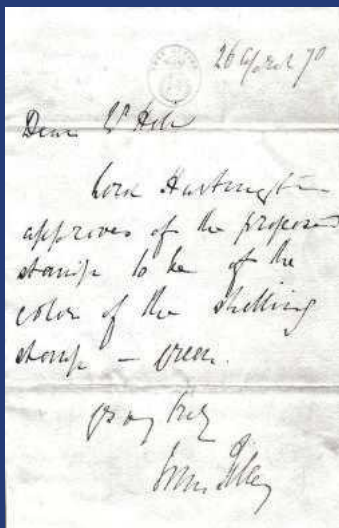 26 April 70
Dear Mr Hill
Lord Hartington
approves of the proposed
stamp to be of the
color of the shilling
stamp – green.
Very truly
John Tilley